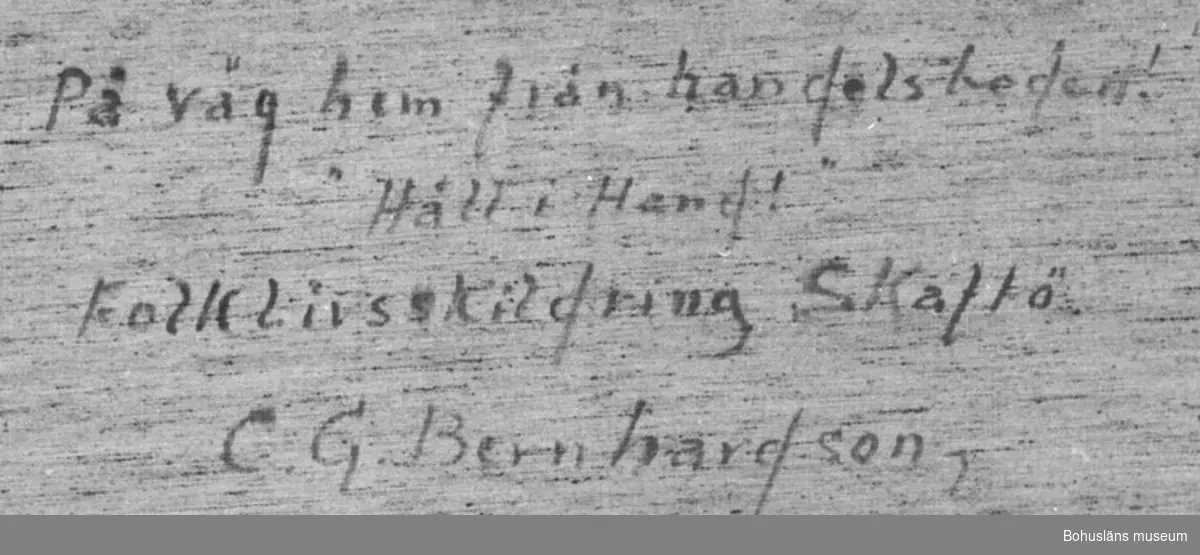 På väg hem från handelsboden!
"Håll i Hand!"
Folklivsskildring Skaftö.
C. G. Bernhardson,
Foto: Bohusläns museum